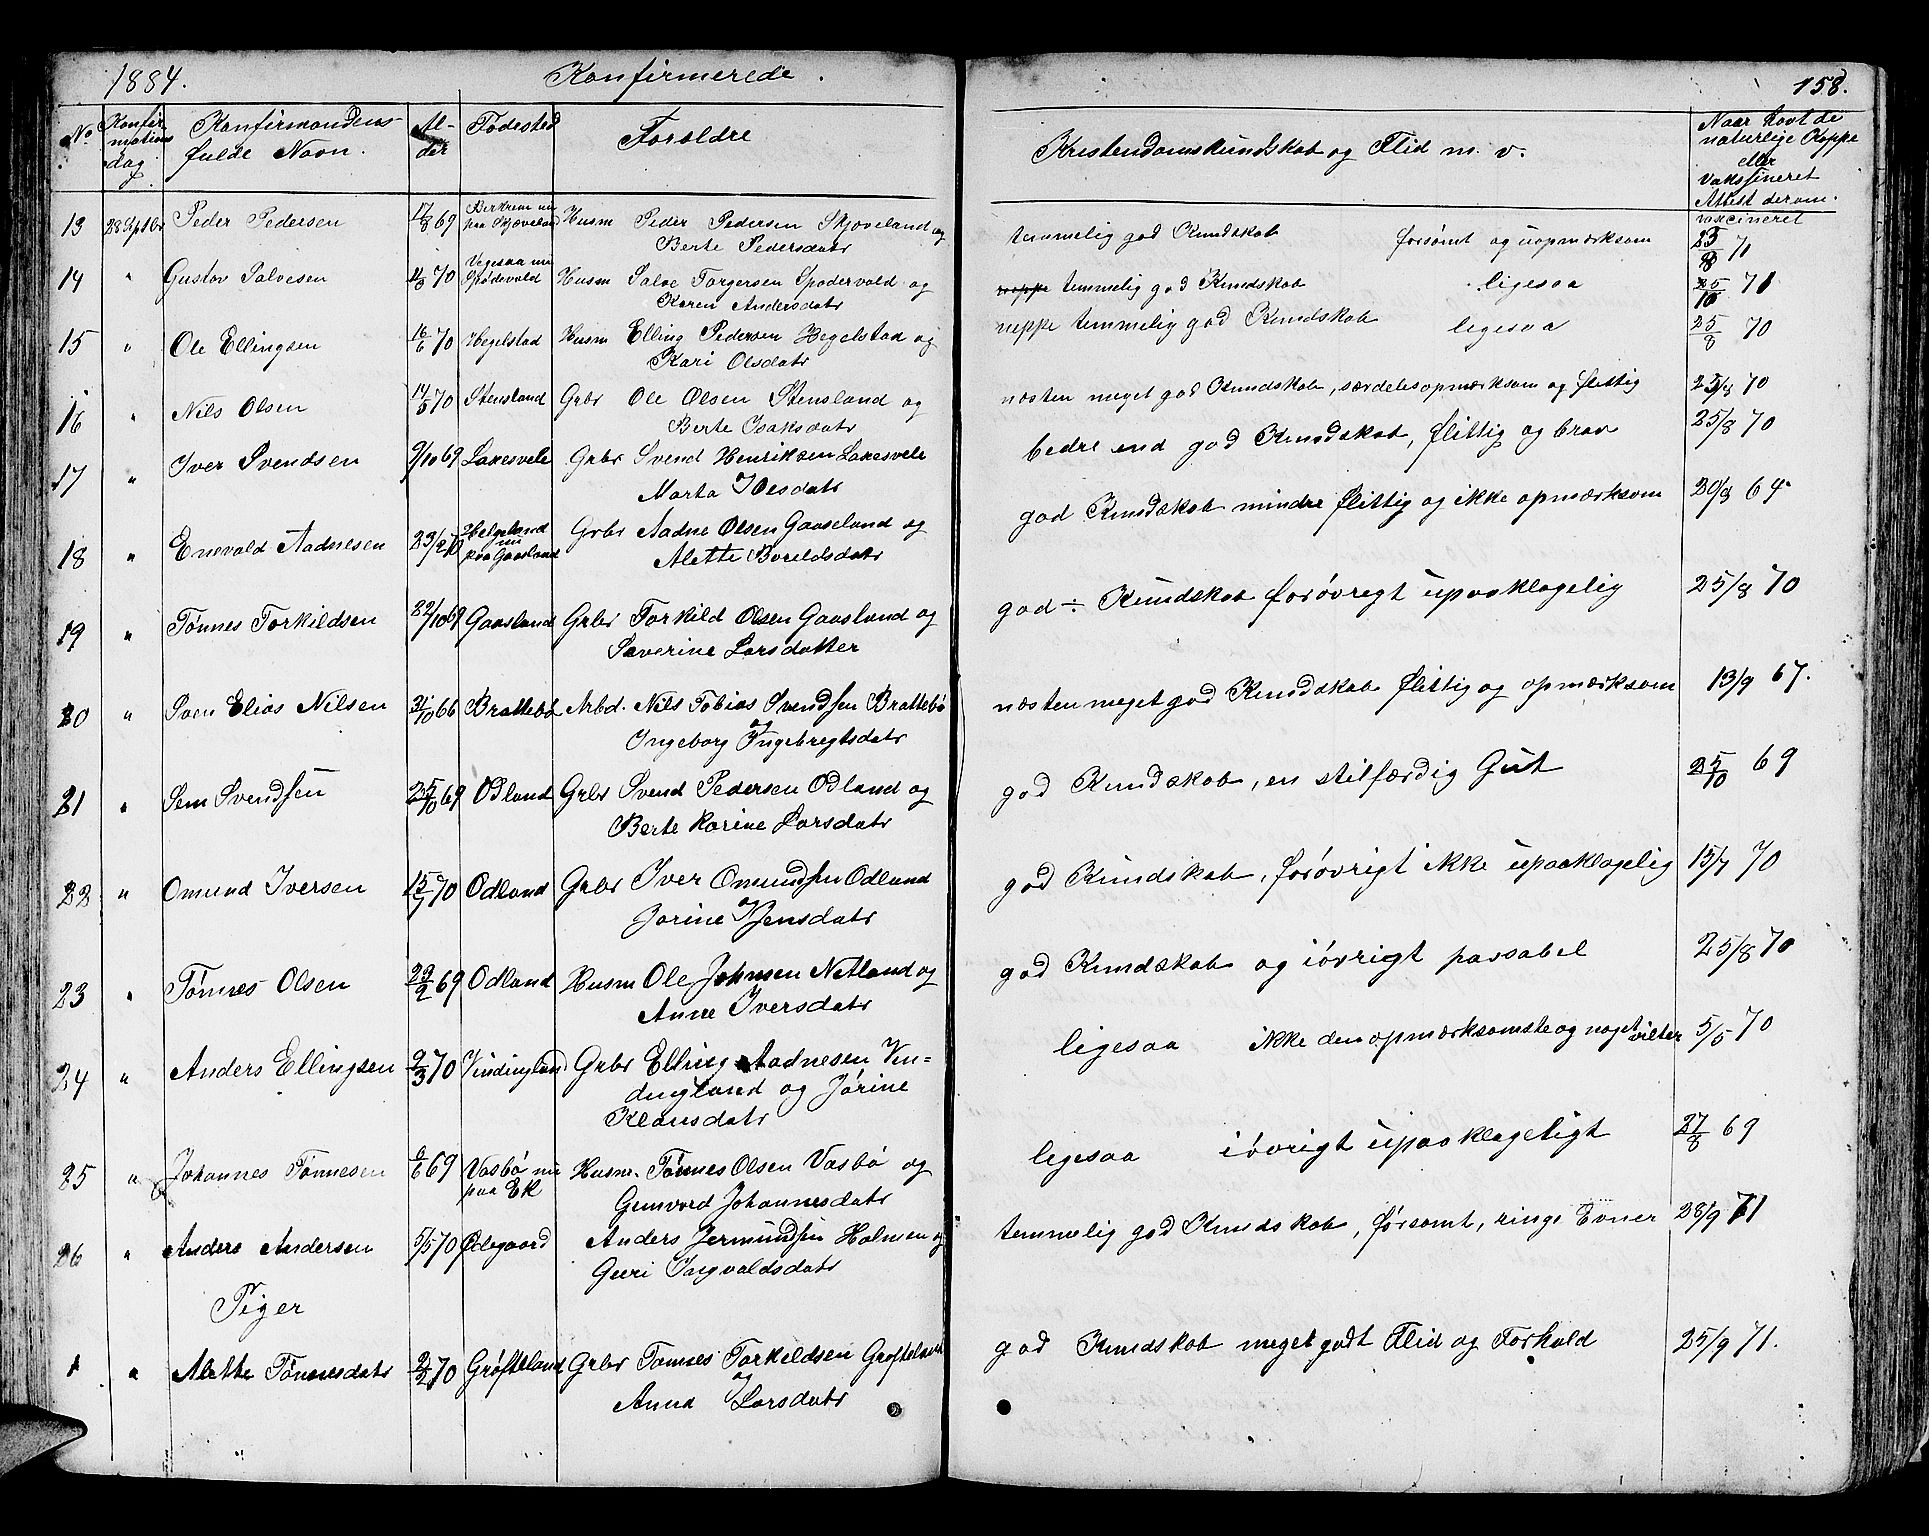 1884. Konfirmerede. 158.
No. Konfirmations dag. Konfirmandens fulde Navn. Alder Fødested Forældre Kristendomskundskab og Flid m. v. Naar havt de naturlige Kopper eller vaksineret Attest derom.
vaccineret
13 28 Sptbr Peder Pedersen 17/8 69 Berkrem nu paa Skjæveland Husm Peder Pedersen Skjæveland og temmelig god Kundskab forsømt og uopmærksom 71
Berte Pedersdatr
14 " Gustav Salvesen 70 Vegesaa nu Spødevold Husm Salve Torgersen Spødervold og temmelig god Kundskab ligesaa 25/10 71
Karen Andersdatr
15 " Ole Ellingsen 16/6 70 Hegelstad Husm Elling Pedersen Hegelstad og neppe temmelig god Kundskab ligesaa 25/8 70
Kari Olsdatr
16 " Nils Olsen 70 Stensland Grbr Ole Olsen Stensland og næsten meget god Kundskab, særdeles opmærksom og flittig 25/8 70
Berte Isaksdatr
17 " Iver Svendsen 9/10 69 Laxesvele Grbr Svend Henriksen Laxesvele bedre end god Kundskab, flittig og brav 25/8 70
Marta Olesdatr
18 " Enevald Aadnesen 23/2 70 Helgeland nu paa Gaasland Grbr Aadne Olsen Gaaseland og god Kundskab mindre flittig og ikke opmærksom
Alette Bereldsdatr
19 " Tønnes Torkildsen 22/10 69 Gaasland Grbr Torkild Olsen Gaasland og god ÷ Kundskab forøvrigt upaaklagelig 25/8 70
Severine Larsdatter
20 " Sven Elias Nilsen 31/10 66 Brattebø Arbd. Nils Tobias Svendsen Brattebø næsten meget god Kundskab flittig og opmærksom 13/9 67.
og Ingeborg Ingebregtsdatr
21 " Sem Svendsen 25/10 69 Odland Grbr Svend Pedersen Odland og god Kundskab, en stilfærdig Gut 25/10 69
Berte Karine Larsdatr
22 " Omund Iversen 15/7 70 Odland Grbr Iver Omundsen Odland god Kundskab, forøvrigt ikke upaaklagelig 15/7 70
og Jorine Jensdatr
23 " Tønnes Olsen 23/2 69 Odland Husm Ole Johnsen Netland og god Kundskab og iøvrigt passabel 25/8 70
Anne Iversdatr
24 " Anders Ellingsen 9/3 70 Vindingland Grbr Elling Aadnesen Vin- ligesaa ikke den opmærksomste og noget vilter 5/5 70
dingland og Jørine
Klausdatr
25 " Johannes Tønnesen 9/6 69 Vasbø nu paa Ek Husm. Tønnes Olsen Vasbø og ligesaa iøvrigt upaaklageligt 27/8 69
Gunvord Johannesdatr
26 " Anders Andersen 5/5 70 Ødegaard Anders Jermundsen Holmen og temmelig god Kundskab, forsømt, ringe Evner 28/9 71
Guri Ingvaldsdatr
Piger
1 " Alette Tønnesdatr 2/2 70 Grøfteland Grbr Tønnes Torkildsen Grøfteland god Kundskab meget godt Flid og Forhold 25/9 71.
og Anna Larsdatr